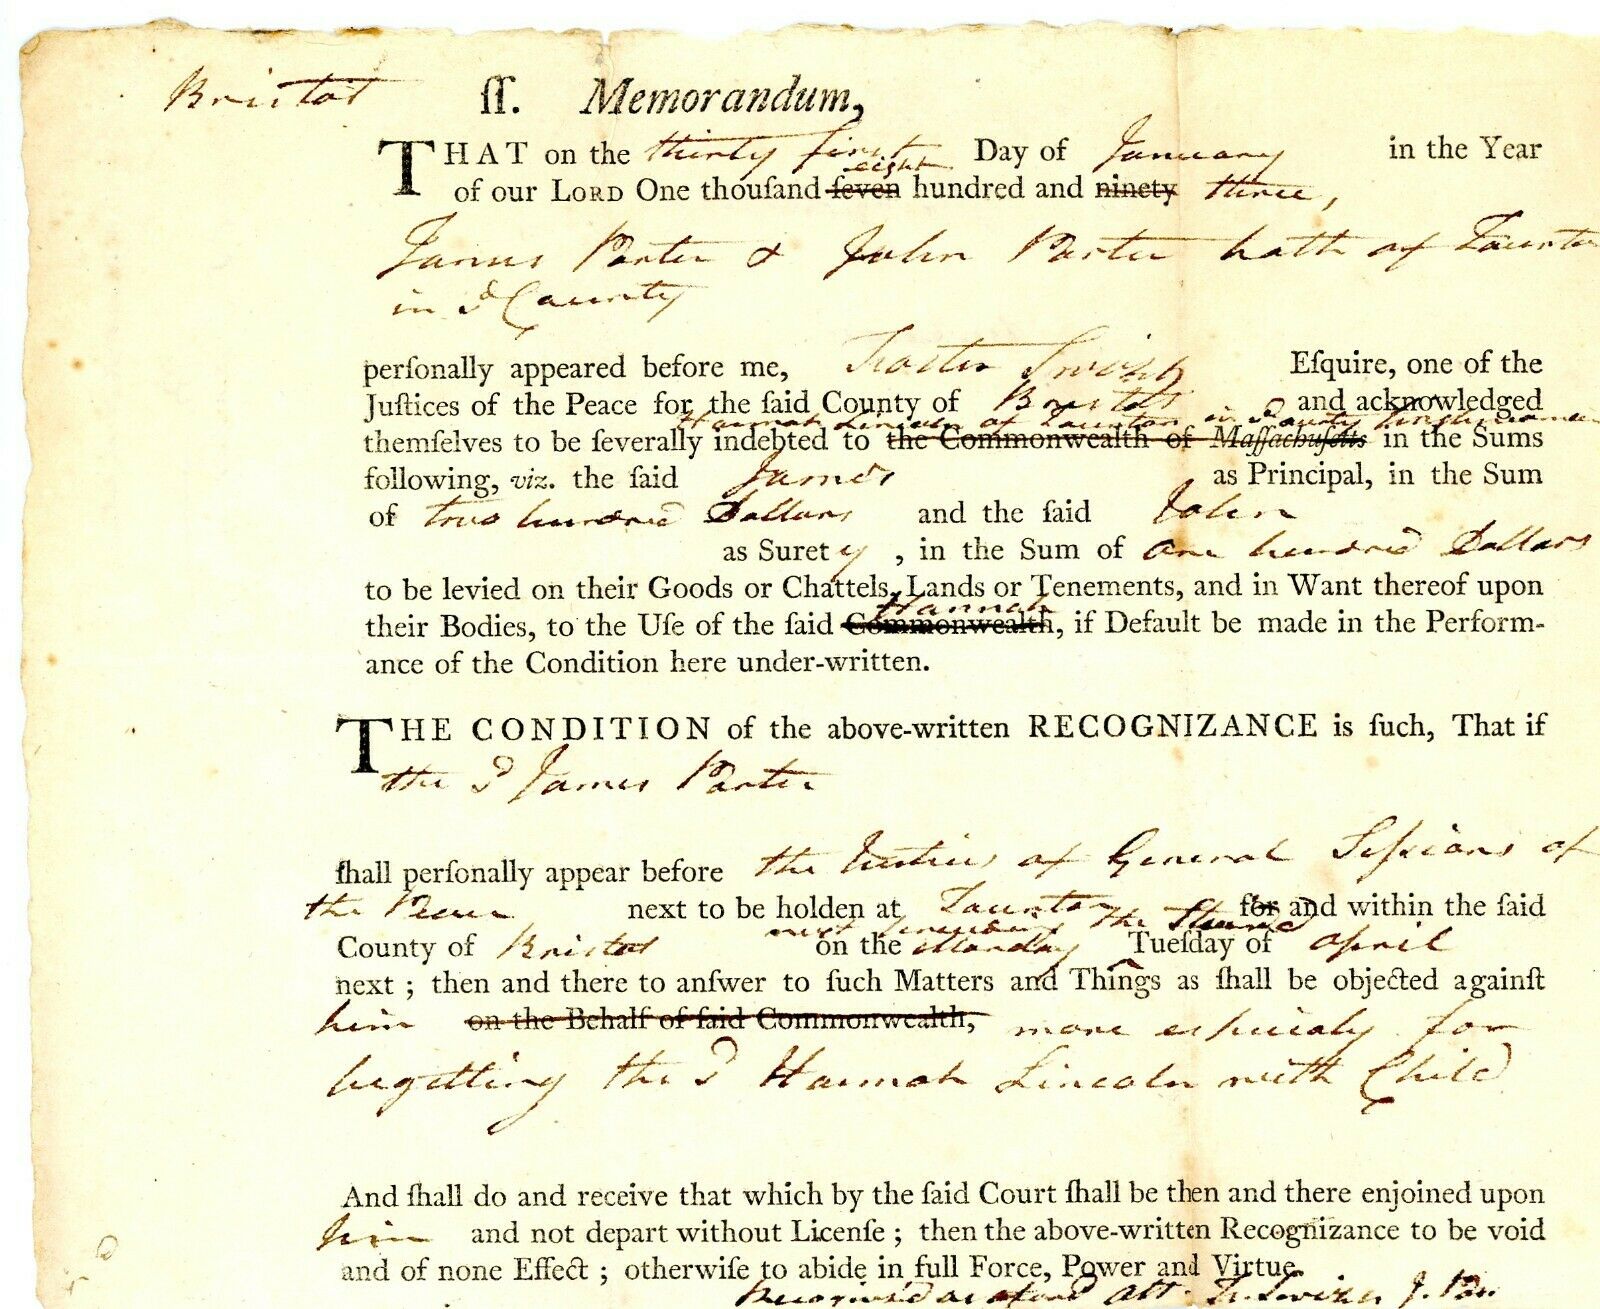 Bristol ſſ. Memorandum,
THAT on the thirty first Day of January in the Year
eight
of our LORD One thouſand ſeven hundred and ninety three,
James Porter & John Porter both of Taunton
in sd County
perſonally appeared before me, Eſquire, one of the
Juſtices of the Peace for the ſaid County of Bristol and acknowledged
Hannah Lincoln of Taunton in sd County Singlewoman
themſelves to be ſeverally indebted to the Commonwealth of Maſſachuſetts in the Sums
following, viz. the ſaid James as Principal, in the Sum
of two hundred Dollars and the ſaid John
as Surety, in the Sum of one hundred Dollars
to be levied on their Goods or Chattels, Lands or Tenements, and in Want thereof upon
Hannah
their Bodies, to the Uſe of the ſaid Commonwealth, if Default be made in the Perform-
ance of the Condition here under-written.
THE CONDITION of the above-written RECOGNIZANCE is ſuch, That if
the sd James Porter
ſhall perſonally appear before the Justices of General Seſsions of
the Peace next to be holden at Taunton for and within the ſaid
next preceeding the Second
County of Bristol on the Monday Tueſday of April
next ; then and there to anſwer to ſuch Matters and Things as ſhall be objected againſt
him on the Behalf of ſaid Commonwealth, more especialy for
begetting the sd Hannah Lincoln with Child
And ſhall do and receive that which by the ſaid Court ſhall be then and there enjoined upon
him and not depart without Licenſe ; then the above-written Recognizance to be void
and of none Effect ; otherwiſe to abide in full Force, Power and Virtue.
att.